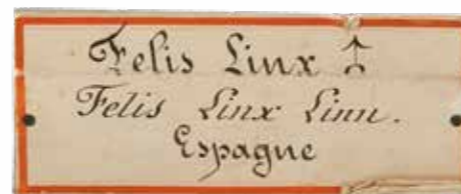 Felis Linx ♂
Felis Linx Linn.
Espagne